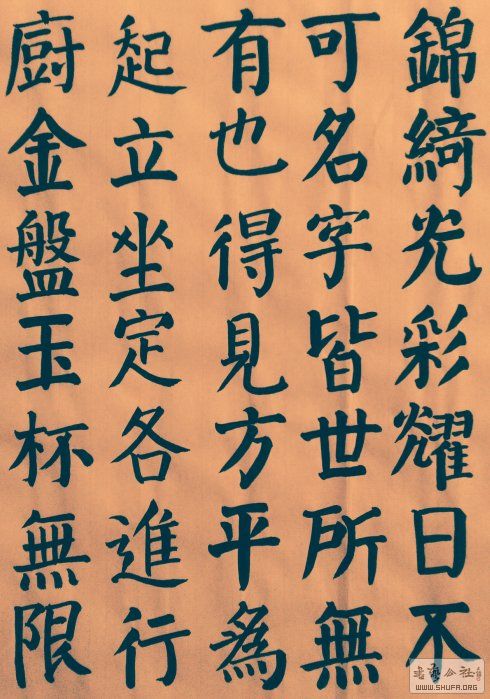 錦綺光彩耀日不
可名字皆世所無
有也得見方平爲
起立坐定各進行
廚金盤玉杯無限
WWW.SHUFA.ORG